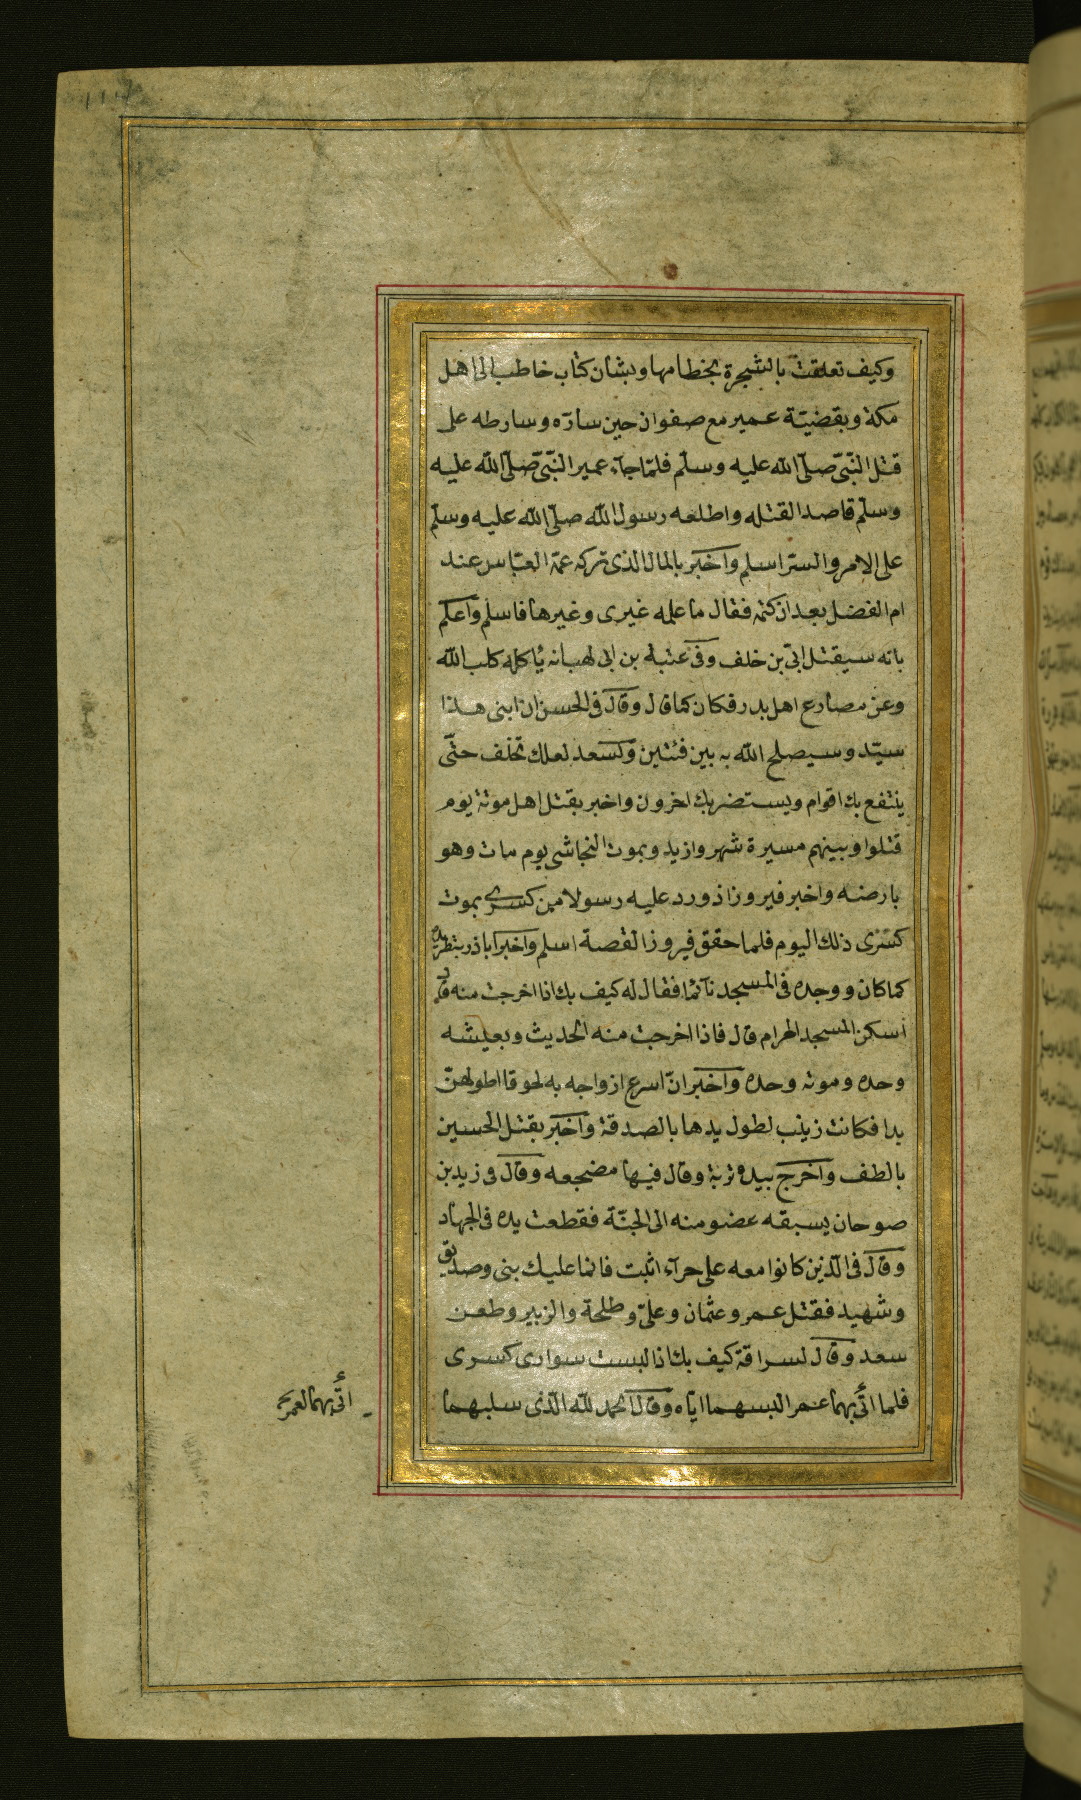 وكيف تعلقت بالشجرة بخطامها وبشان كتاب خاطب الى اهل
مكة وبقضيّة عمير مع صفوان حين سارّه وسارطه على
قتل النّبىّ صلّى الله عليه وسلّم فلمّا جآء عمير النّبىّ صلّى الله عليه
وسلّم قاصدا لقتله واطلعه رسول الله صلّى الله عليه وسلّم
على الامر والسّر اسلم واخبر بالمال الذى تركه عمّه العبّاس عند
ام الفضل بعد ان كتمه فقال ما علمه غيرى وغيرها فاسلم واعلم
بانه سيقتل ابىّ بن خلف وفى عتبة بن ابى لهب انه ياكله كلب الله
وعن مصارع اهل بدر فكان كما قال وقال فى الحسن ان ابنى هذا
سيّد وسيصلح الله به بين فئتين ولسعد لعلك تخلف حتّى
ينتفع بك اقوام ويستضر بك اخرون واخبر بقتل اهل موتة يوم
قتلوا وبينهم مسيرة شهر وازيد وبموت النجاشى يوم مات وهو
بارضه واخبر فيروز اذ ورد عليه رسولا من كسرى بموت
كسرى ذلك اليوم فلما حقق فيروز القصة اسلم واخبر اباذر بتطريده
كما كان ووجده فى المسجد نآئما فقال له كيف بك اذا اخرجت منه قال
اسكن المسجد الحرام قال فاذا اخرجت منه الحديث وبعيشه
وحده وموته وحده واخبر انّ اسرع ازواجه به لحوقا اطولهنّ
يدا فكانت زينب لطول يدها بالصدقة واخبر بقتل الحسين
بالطف واخرج بيده تربة وقال فيها مضجعه وقال فى زيد بن
صوحان يسبقه عضو منه الى الجنّة فقطعت يده فى الجهاد
وقال فى الّذين كانوا معه على حرآء اثبت فانما عليك نبى وصديق
وشهيد فقتل عمر وعثمان وعلىّ وطلحة والزبير وطعن
سعد وقال لسراقة كيف بك اذا لبست سوارى كسرى
فلما اتى بهما عمر البسهما اياه وقال الحمد لله الّذى سلبهما
اتى بهما لعمر